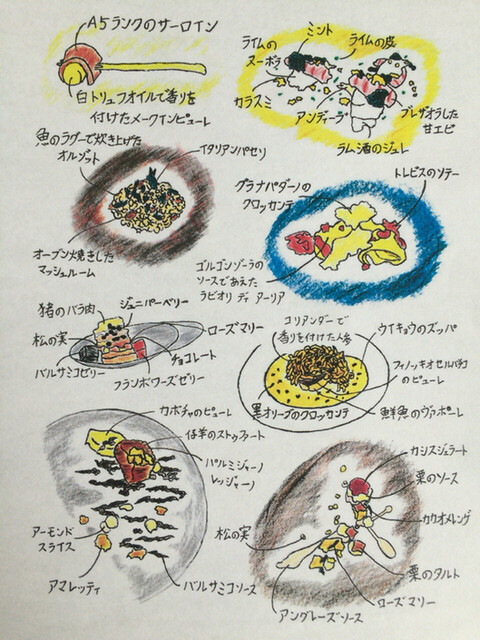 A5ランクのサーロイン
白トリュフオイルで香りを
付けたメークインピューレ
ライムの
スーポラ
ミント
ライムの皮
カラスミ
アンディーブ
ブレザオラした
甘エビ
ラム酒のジュレ
魚のラグーで炊き上げた
オルゾット
イタリアンパセリ
オーブン焼きした
マッシュルーム
グラナパダーノの
クロッカンテ
トレビスのソテー
ゴルゴンゾーラの
ソースであえた
ラビオリ ディ アーリア
猪のバラ肉
ジュニパーベリー
松の実
ローズマリー
チョコレート
バルサミコゼリー
フランボワーズゼリー
コリアンダーで
香りを付けた人参
ウイキョウのズッパ
フィノッキオセルバチコ
のピューレ
黒オリーブのクロッカンテ
鮮魚のヴァポーレ
カボチャのピューレ
仔羊のストゥファート
パルミジャーノ
レッジャーノ
アーモンド
スライス
アマレッティ
バルサミコソース
カシスジェラート
栗のソース
カカオメレンゲ
松の実
栗のタルト
ローズマリー
アングレーズソース